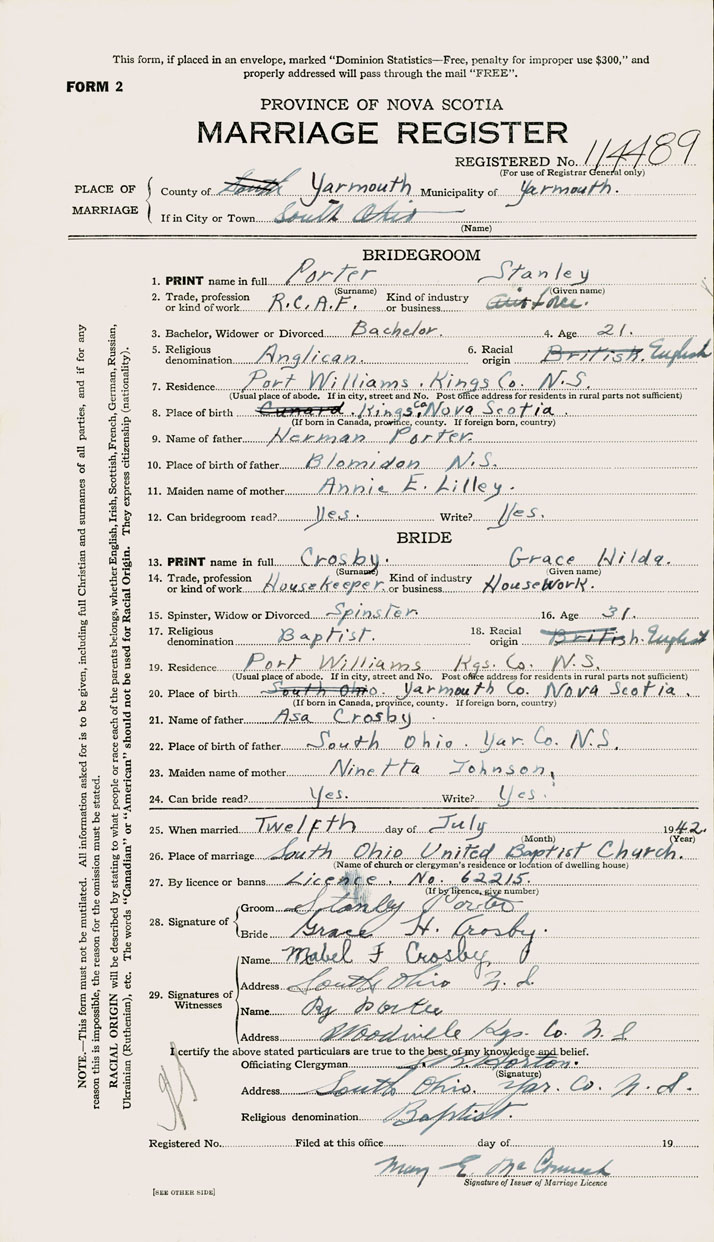 This form, if placed in an envelope, marked "Dominion Statistics—Free, penalty for improper use $300," and
properly addressed will pass through the mail "FREE".
FORM 2
PROVINCE OF NOVA SCOTIA
MARRIAGE REGISTER
REGISTERED No. 114489
(For use of Registrar General only)
PLACE OF MARRIAGE
County of South Yarmouth Municipality of Yarmouth.
If in City or Town South Ohio
(Name)
BRIDEGROOM
1. PRINT name in full Porter Stanley
(Surname) (Given name)
2. Trade, profession or kind of work R.C.A.F. Kind of industry or business Air force.
3. Bachelor, Widower or Divorced Bachelor. 4. Age 21.
5. Religious denomination Anglican. 6. Racial origin British. English
7. Residence Port Williams. Kings Co. N.S.
(Usual place of abode. If in city, street and No. Post office address for residents in rural parts not sufficient)
8. Place of birth Cunard. Kings Co. Nova Scotia.
(If born in Canada, province, county. If foreign born, country)
9. Name of father Herman Porter.
10. Place of birth of father Blomidon N.S.
11. Maiden name of mother Annie E. Lilley.
12. Can bridegroom read? Yes. Write? Yes.
BRIDE
13. PRINT name in full Crosby. Grace Hilda.
(Surname) (Given name)
14. Trade, profession or kind of work Housekeeper. Kind of industry or business Housework.
15. Spinster, Widow or Divorced Spinster. 16. Age 31.
17. Religious denomination Baptist. 18. Racial origin British. English
19. Residence Port Williams Kgs. Co. N.S.
(Usual place of abode. If in city, street and No. Post office address for residents in rural parts not sufficient)
20. Place of birth South Ohio. Yarmouth Co. Nova Scotia.
(If born in Canada, province, county. If foreign born, country)
21. Name of father Asa Crosby.
22. Place of birth of father South Ohio. Yar. Co. N.S.
23. Maiden name of mother Ninetta Johnson,
24. Can bride read? Yes. Write? Yes.
25. When married Twelfth day of July 1942.
(Month) (Year)
26. Place of marriage South Ohio United Baptist Church.
(Name of church or clergyman's residence or location of dwelling house)
27. By licence or banns Licence. No. 62215.
(If by licence, give number)
28. Signature of
Groom Stanley Porter
Bride Grace H. Crosby.
29. Signatures of Witnesses
Name Mabel F Crosby
Address South Ohio N.S.
Name Porter
Address Woodville Kgs. Co. N S
I certify the above stated particulars are true to the best of my knowledge and belief.
Officiating Clergyman Horton.
(Signature)
Address South Ohio. Yar. Co. N.S.
Religious denomination Baptist.
Registered No. Filed at this office day of 19
Mary E.
Signature of Issuer of Marriage Licence
[SEE OTHER SIDE]
NOTE.—This form must not be mutilated. All information asked for is to be given, including full Christian and surnames of all parties, and if for any
reason this is impossible, the reason for the omission must be stated.
RACIAL ORIGIN will be described by stating to what people or race each of the parents belongs, whether English, Irish, Scottish, French, German, Russian,
Ukrainian (Ruthenian), etc. The words "Canadian" or "American" should not be used for Racial Origin. They express citizenship (nationality).